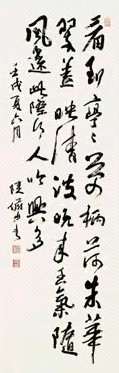 看到亭亭萬柄荷朱華
翠蓋映清波晚來氣隨
風遠此際人吟興多
壬戌夏六月
陸儼少書